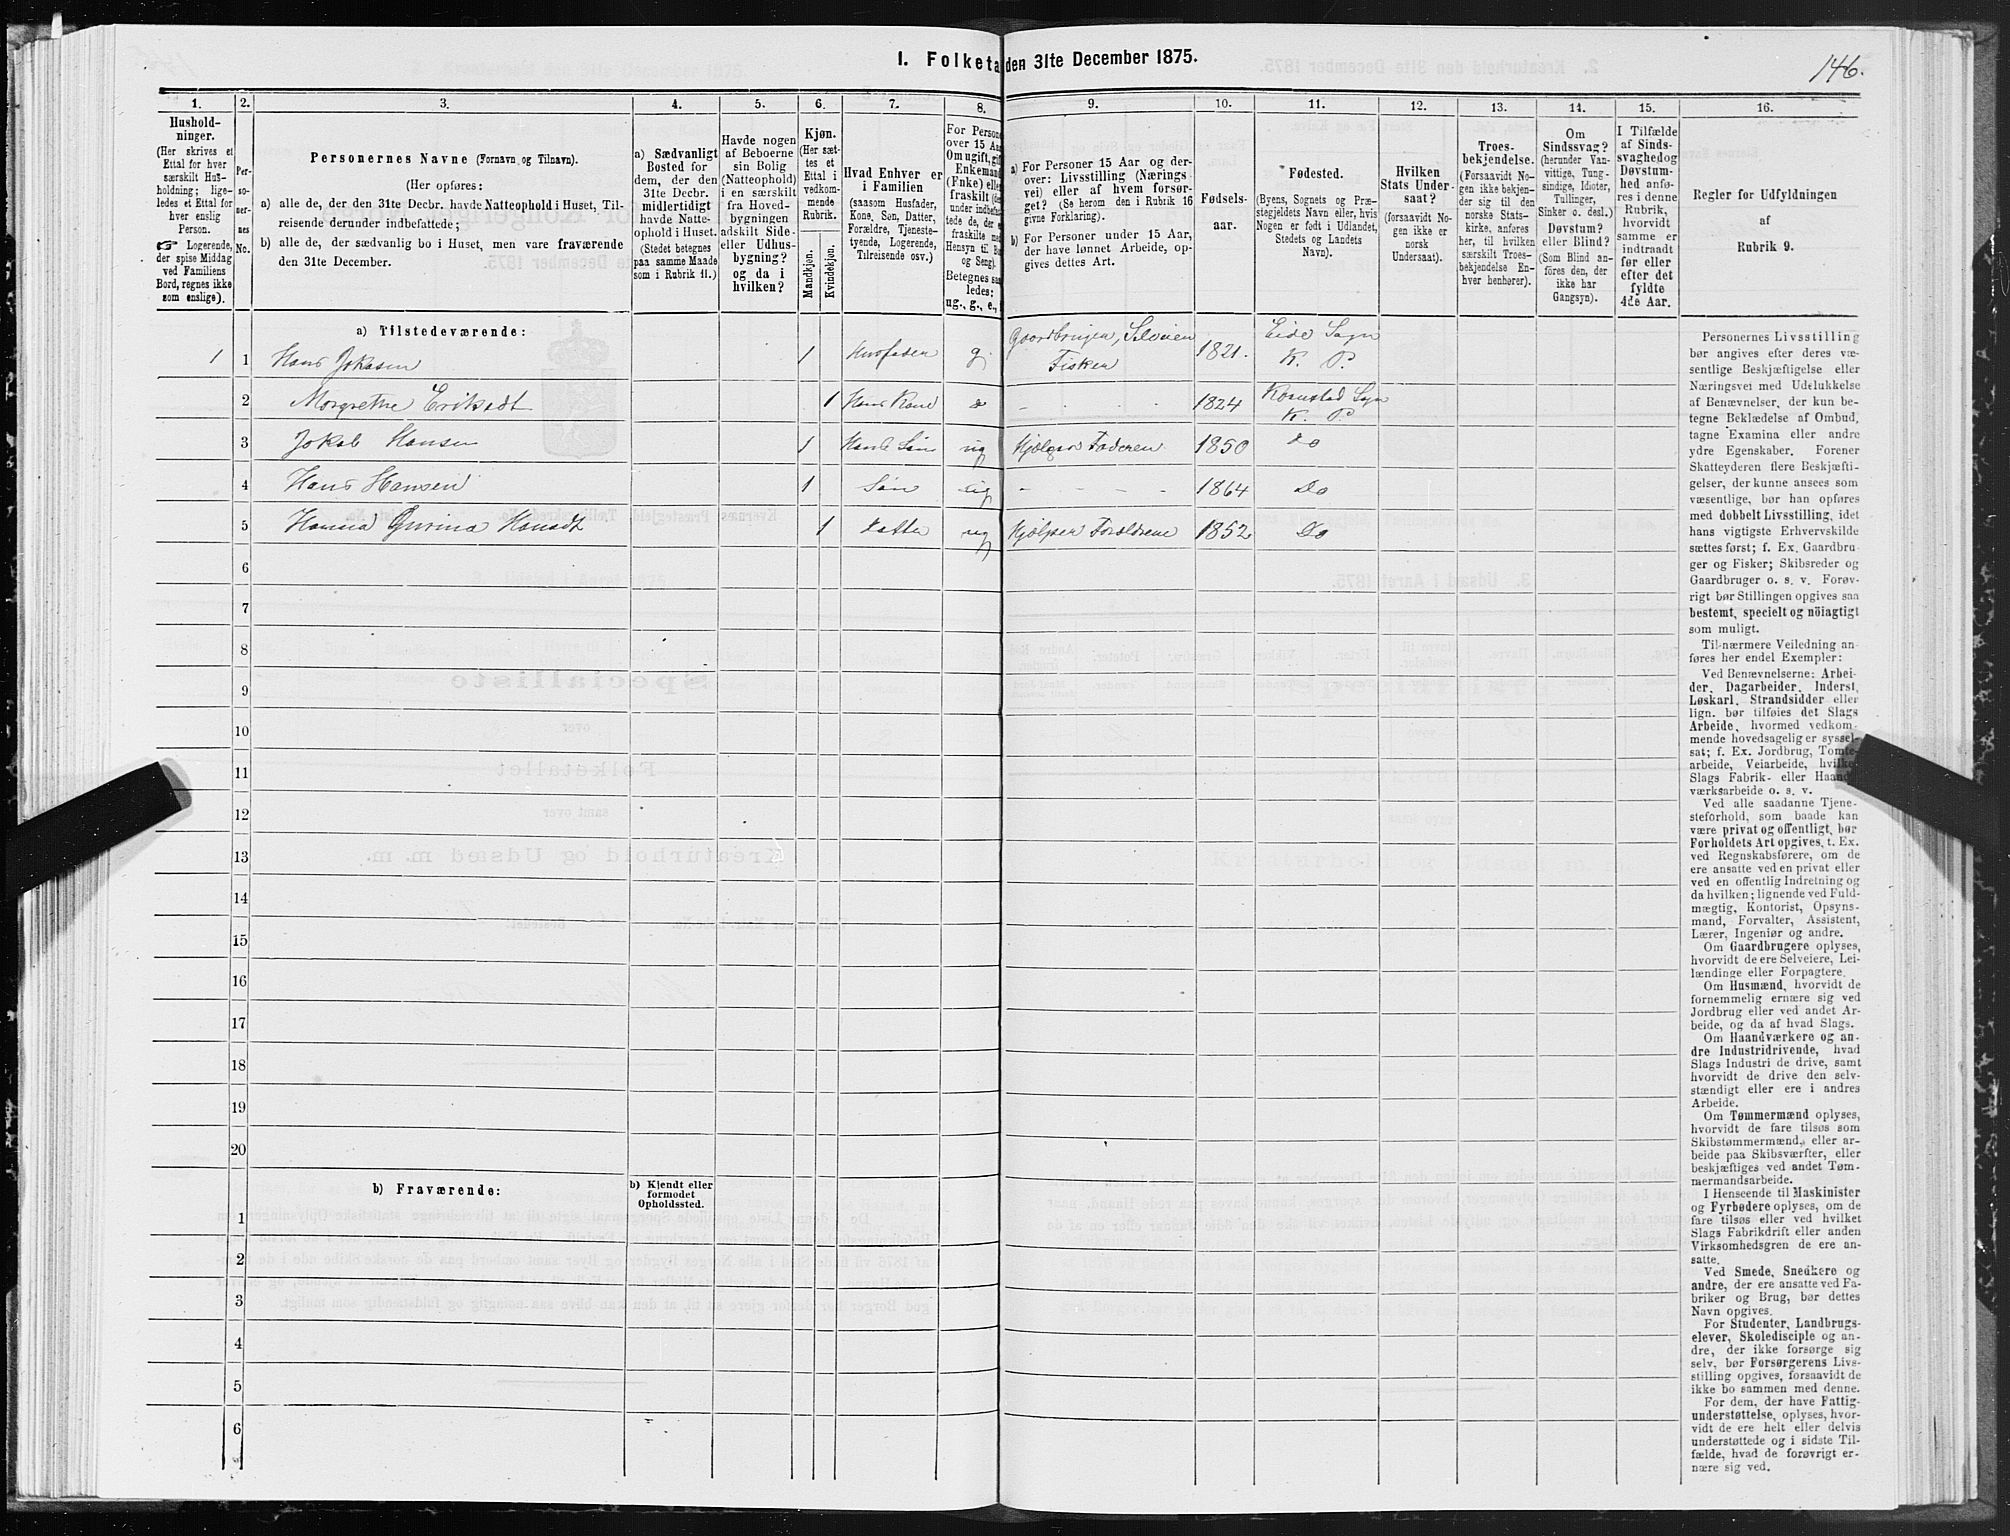 I. Folketa
den 31te December 1875.
146.
1.
2.
3.
4.
5.
6.
7.
8.
9.
10.
11.
12.
13.
14.
15.
16.
Hushold-
ninger.
(Her skrives et
Ettal for hver
særskilt Hus-
holdning; lige-
ledes et Ettal for
hver enslig
Person.
☞ Logerende,
der spise Middag
ved Familiens
Bord, regnes ikke
som enslige).
Per-
so-
ner-
nes
No.
Personernes Navne (Fornavn og Tilnavn).
(Her opføres:
a) alle de, der den 31te Decbr. havde Natteophold i Huset, Til-
reisende derunder indbefattede;
b) alle de, der sædvanlig bo i Huset, men vare fraværende
den 31te December.
a) Sædvanligt
Bosted for
dem, der den
31te Decbr.
midlertidigt
havde Natte-
ophold i Huset.
(Stedet betegnes
paa samme Maade
som i Rubrik 11.)
Havde nogen
af Beboerne
sin Bolig
(Natteophold)
i en særskilt
fra Hoved-
bygningen
adskilt Side-
eller Udhus-
bygning?
og da i
hvilken?
Kjøn.
(Her sæt-
tes et
Ettal i
vedkom-
mende
Rubrik.
Mandkjøn.
Kvindekjøn.
Hvad Enhver er
i Familien
(saasom Husfader,
Kone, Søn, Datter,
Forældre, Tjeneste-
tyende, Logerende,
Tilreisende osv.)
For Persone
over 15 Aar
Om ugift, gift
Enkemand
(Enke) elle
fraskilt (der
under indbefat
tede de, der e
fraskilte med
Hensyn til Bo
og Seng).
Betegnes saa
ledes:
ug., g., e.,
a) For Personer 15 Aar og der-
over: Livsstilling (Nærings
vei) eller af hvem forsør-
get? (Se herom den i Rubrik 16
givne Forklaring).
b) For Personer under 15 Aar,
der have lønnet Arbeide, op-
gives dettes Art.
Fødsels-
aar.
Fødested.
(Byens, Sognets og Præ-
stegjeldets Navn eller, hvis
Nogen er født i Udlandet,
Stedets og Landets
Navn).
Hvilken
Stats Under-
saat?
(forsaavidt No-
gen ikke er
norsk
Undersaat).
Troes-
bekjendelse.
(Forsaavidt No-
gen ikke bekjen-
der sig til den
norske Stats-
kirke, anføres
her, til hvilken
særskilt Troes-
bekjendelse En-
hver henhører).
Om
Sindssvag?
(herunder Van-
vittige, Tung-
sindige, Idioter,
Tullinger,
Sinker o. desl.)
Døvstum?
eller Blind?
(Som Blind an-
føres den, der
ikke har
Gangsyn).
I Tilfælde
af Sinds-
svaghed og
Døvstum-
hed anfø-
res i denne
Rubrik,
hvorvidt
samme er
indtraadt
før eller
efter det
fyldte
4de Aar.
Regler for Udfyldningen
af
Rubrik 9.
a) Tilstedeværende:
1 1 Hans Jokasen 1 Husfader g. Gaardbruger, Selveier Fisker 1821. Eide Sogn K. P.
2 Margrethe Eriksdt 1 Hans Kone do - 1824 Kornstad Sogn K. P.
3 Jokob Hansen 1 Hans Søn ug Hjælper Faderen 1850 do
4 Hans Hansen 1 Søn ug - 1864 Do
5 Hanna Gurina Hansdt 1 Datter ug Hjelper Forældrene 1852 Do
6
7
8
9
10
11
12
13
14
15
16
17
18
19
20
b) Fraværende:
b) Kjendt eller
formodet
Opholdssted.
1
2
3
4
5
6
Personernes Livsstilling
bør angives efter deres væ-
sentlige Beskjæftigelse eller
Næringsvei med Udelukkelse
af Benævnelser, der kun be-
tegne Beklædelse af Ombud,
tagne Examina eller andre
ydre Egenskaber. Forener
Skatteyderen flere Beskjæfti-
gelser, der kunne ansees som
væsentlige, bør han opføres
med dobbelt Livsstilling, idet
hans vigtigste Erhvervskilde
sættes først; f. Ex. Gaardbru-
ger og Fisker; Skibsreder og
Gaardbruger o. s. v. Forøv-
rigt bør Stillingen opgives saa
bestemt, specielt og nöiagtigt
som muligt.
Til nærmere Veiledning an-
føres her endel Exempler:
Ved Benævnelserne: Arbei-
der, Dagarbeider, Inderst,
Løskarl, Strandsidder eller
lign. bør tilføies det Slags
Arbeide, hvormed vedkom-
mende hovedsagelig er syssel-
sat; f. Ex. Jordbrug, Tomte-
arbeide, Veiarbeide, hvilket
Slags Fabrik- eller Haand-
værksarbeide o. s. v.
Ved alle saadanne Tjene-
steforhold, som baade kan
være privat og offentligt, bør
Forholdets Art opgives, t. Ex.
ved Regnskabsførere, om de
ere ansatte ved en privat eller
ved en offentlig Indretning og
da hvilken; lignende ved Fuld-
mægtig, Kontorist, Opsyns-
mand, Forvalter, Assistent,
Lærer, Ingeniør og andre.
Om Gaardbrugere oplyses,
hvorvidt de ere Selveiere, Lei-
lændinge eller Forpagtere.
Om Husmænd, hvorvidt de
fornemmelig ernære sig ved
Jordbrug eller ved andet Ar-
beide, og da af hvad Slags.
Om Haandværkere og an-
dre Industridrivende, hvad
Slags Industri de drive, samt
hvorvidt de drive den selv-
stændigt eller ere i andres
Arbeide.
Om Tømmermænd oplyses,
hvorvidt de fare tilsøs som
Skibstømmermænd, eller ar-
beide paa Skibsværfter, eller
beskjæftiges ved andet Tøm-
mermandsarbeide.
I Henseende til Maskinister
og Fyrbødere oplyses, om de
fare tilsøs eller ved hvilket
Slags Fabrikdrift eller anden
Virksomhedsgren de ere an-
satte.
Ved Smede, Snedkere og
andre, der ere ansatte ved Fa-
briker og Brug, bør dettes
Navn opgives.
For Studenter, Landbrugs-
elever, Skoledisciple og an-
dre, der ikke forsørge sig
selv, bør Forsørgerens Livs-
stilling opgives, forsaavidt de
ikke bo sammen med denne.
For dem, der have Fattig-
understøttelse, oplyses, hvor-
vidt de ere helt eller delvis
understøttede og i sidste Til-
fælde, hvad de forøvrigt er-
nære sig ved.